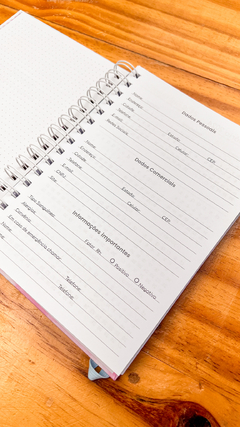 Dados Pessoais
Nome:
Endereço:
Cidade: Estado:
Telefone: Celular: CEP:
E-mail:
Redes Sociais:
Dados Comerciais
Nome:
Endereço:
Cidade: Estado:
Telefone: Celular: CEP:
E-mail:
CNPJ:
Site:
Informações Importantes
Tipo Sanguíneo: Fator Rh: Positivo Negativo
Alergias:
Convênio:
Em caso de emergência chamar:
Nome: Telefone:
Telefone: